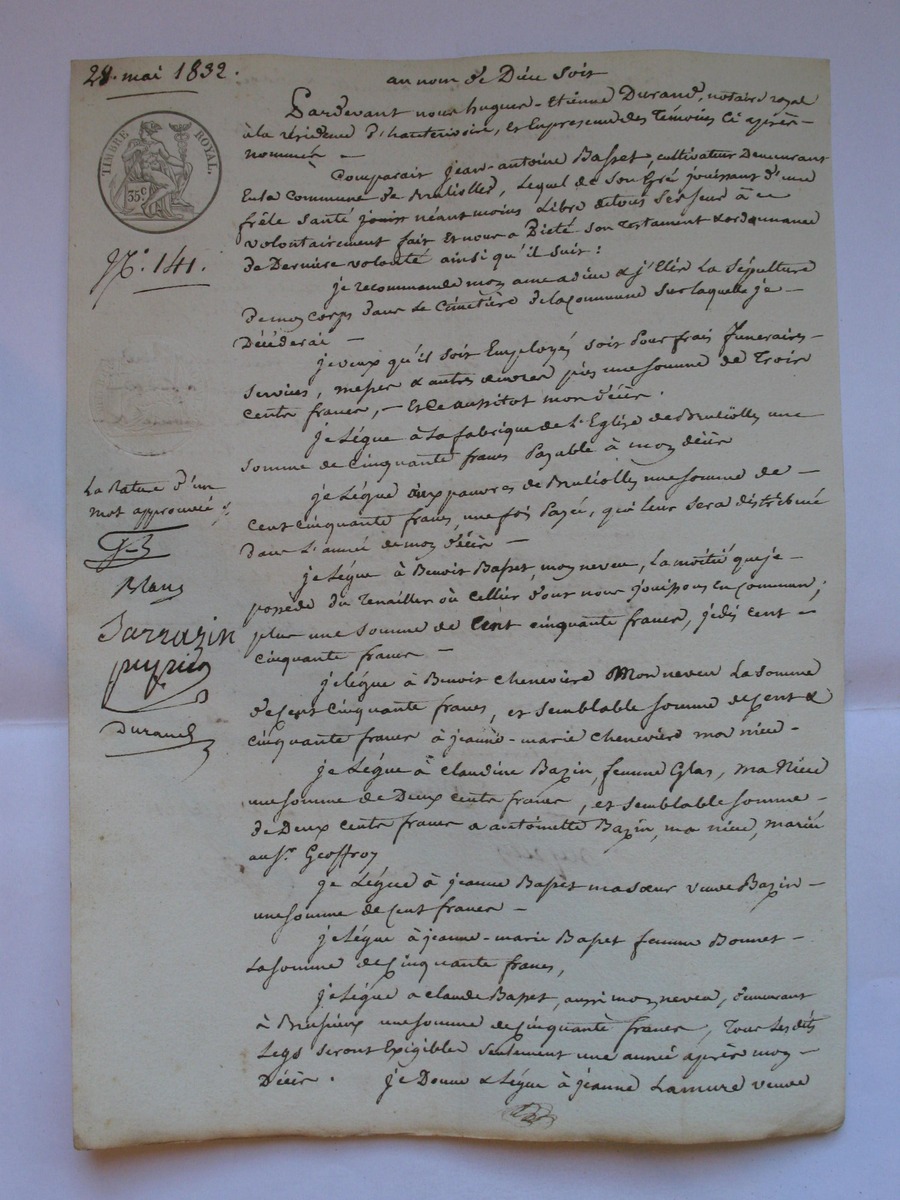 28. mai 1832.
au nom de Dieu soit
Pardevant nous hugues-Etienne Durand, notaire royal
à la résidence d'hauterivoire, et En presence des Témoins Ci après
nommés —
TIMBRE ROYAL.
35 C
Comparait jean-antoine Basset, cultivateur Demeurant
En la Commune de Brullolles, Lequel de Son Gré jouissant d'une
frêle Santé néantmoins Libre de tous Ses Sens a
volontairement fait Et nous a Dicté Son Testament & ordonnance
de Derniere volonté ainsi qu'il Suit :
N.° 141.
je recommande mon ame a dieu & j'Elis La Sépulture
de mon Corps dans le Cimetière de la commune Sur laquelle je —
Décéderai —
je veux qu'il Soit Employés Soit Pour frais funeraires —
Services, messes & autres œuvres pies une Somme de Trois
Cents francs, — Et ce aussitot mon décès.
je Légue à La fabrique de L'Eglise de Brullolles une
Somme de Cinquante francs Payable à mon décès
je Légue aux pauvres de Brullolles une Somme de —
Cent Cinquante francs, une fois Payée, qui leur Sera distribué
dans L'année de mon décès —
La Rature d'un
mot approuvée
je Légue à Benoit Basset, mon neveu, La moitié que je —
possède du Tenailler où Cellier dont nous jouissons En commun ;
plus une Somme de Cent Cinquante francs, je dis Cent —
Cinquante francs —
Blanc
Sarrazin
Durand
je Légue à Benoit Chenevière Mon neveu La Somme
de Cent Cinquante francs, et Semblable Somme de Cent &
Cinquante francs à jeanne-marie Chenevière ma niece —
je Légue à Claudine Bazin, femme Glas, ma Niece
une Somme de Deux Cents francs, et Semblable Somme
de Deux Cents francs a antoinette Bazin, ma niece, mariée
au S.r Geoffroy
je Légue à jeanne Basset ma Sœur veuve Bazin —
une Somme de Cent francs —
je Légue à jeanne-marie Basset femme Bonnet —
La Somme de Cinquante francs,
je Légue a Claude Basset, aussi mon neveu, demeurant
à Brussieux une Somme de Cinquante francs, Tous Les dits
Legs Seront Exigibles Seulement une année après mon —
Décès. je Donne & Légue à jeanne Lamure veuve